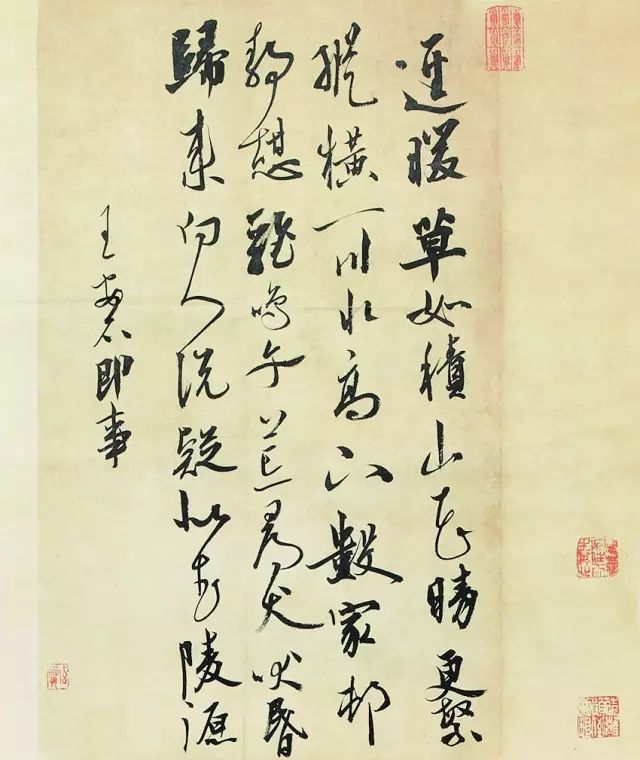 逕暖草如積山花晴更繁
縱橫一川水高下數家村
靜憩雞鳴午荒尋犬吠昏
歸來向人說疑似武陵源
王安石即事